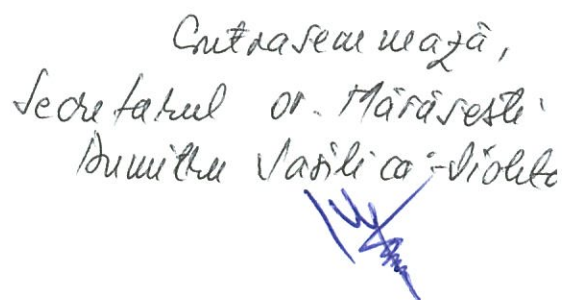 Contrasemnează,
Secretarul or. Mărăşeşti
Dumitru Vasilica-Violeta